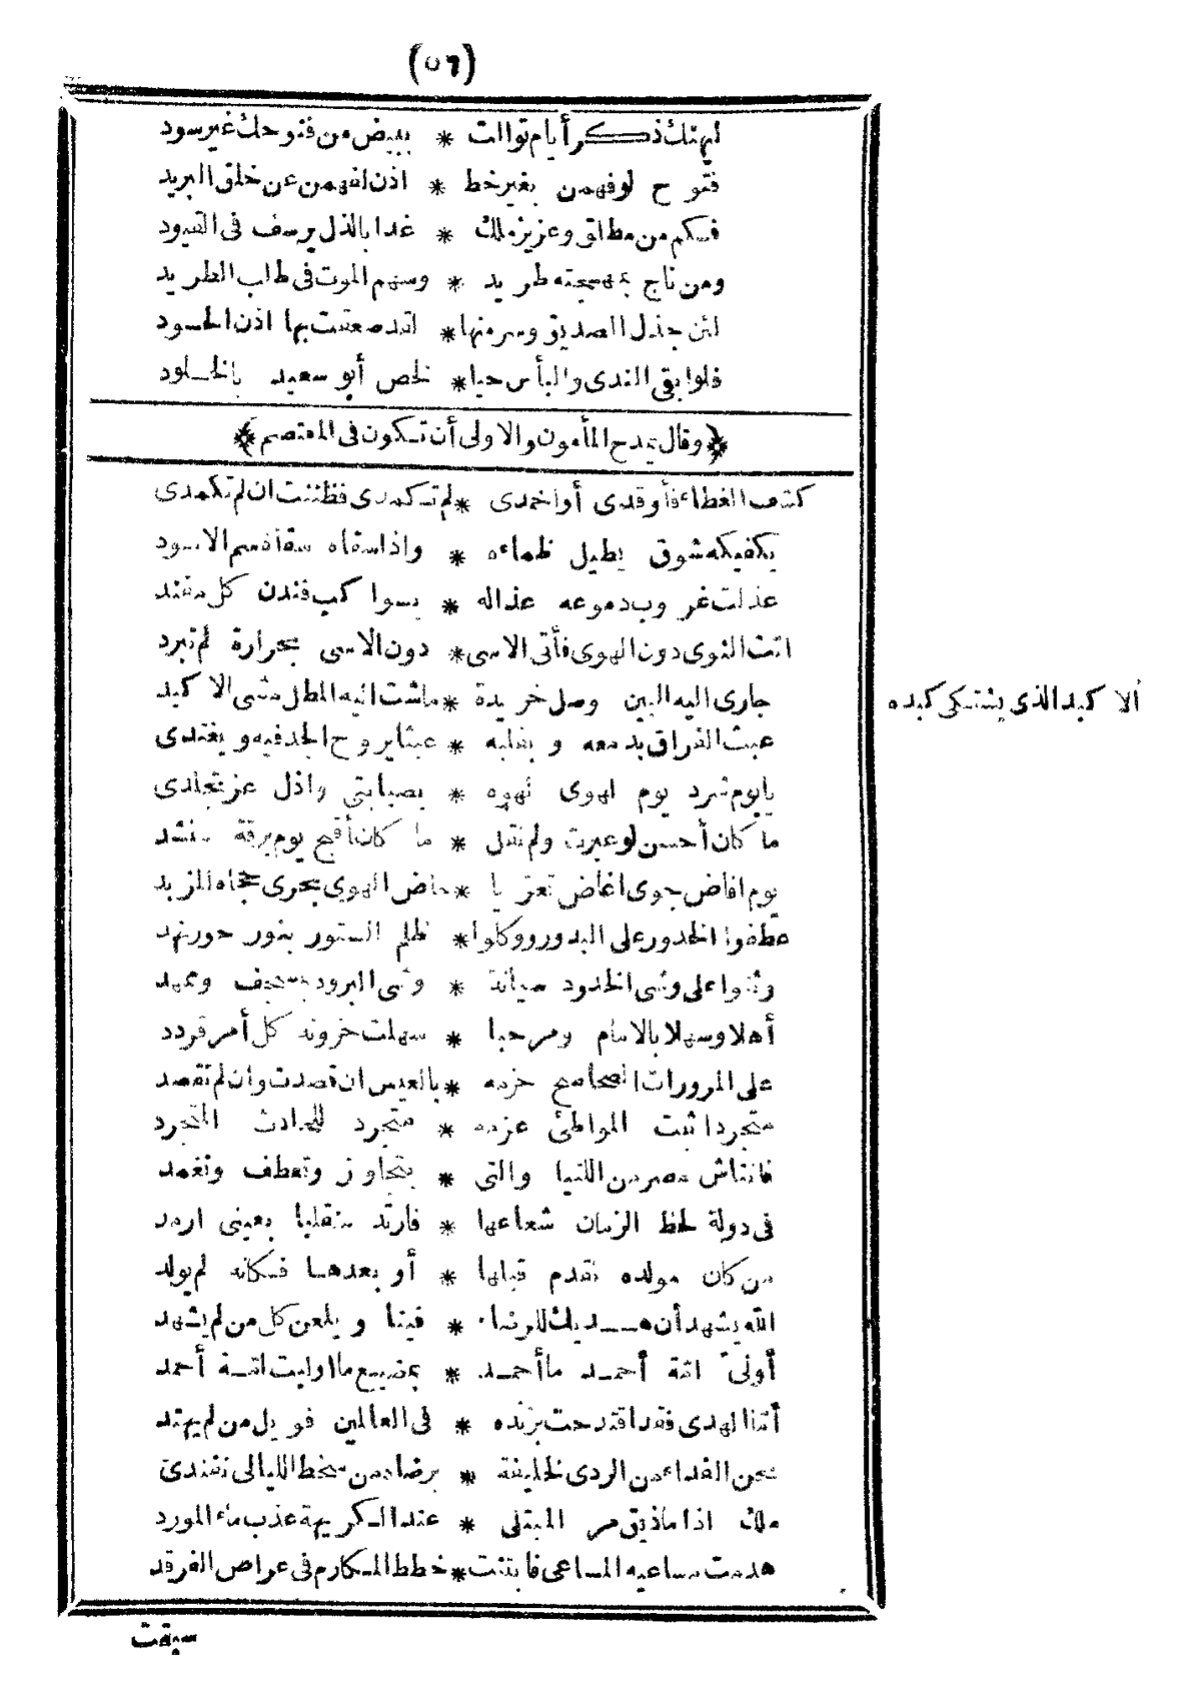 (٥٦)
ليهنك ذكر أيام توالت * ببيض من فتوحك غير سود
فتوح لو فهمن بغير خط * اذن لفهمن عن خلق البريد
فكم من مطلق وعزيز ملك * غدا بالذل يرسف فى القيود
ومن ناج بمهجته طريد * وسهم الموت فى طلب الطريد
لئن جذل الصديق وسر منها * لقد صعقت بها اذن الحسود
فلو ابقى الندى والبأس حيا * لخص أبو سعيد بالخلود
﴿وقال يمدح المأمون والاولى أن تكون فى المعتصم﴾
كشف الغطاء فأوقدى أو اخمدى * لم تكمدى فظننت ان لم تكمدى
يكفيكه شوق يطيل ظماءه * واذا سقاه سقاه سم الاسود
عذلت غروب دموعه عذاله * بسواكب فندن كل مفند
اتت النوى دون الهوى فأتى الاسى * دون الاسى بحرارة لم تبرد
جارى اليه البين وصل خريدة * ماشت اليه المطل مشى الاكبد
ألا كبد الذى يشتكى كبده
عبث الفراق بدمعه وبقلبه * عبثا يروح الجد فيه ويغتدى
يا يوم شرد يوم لهوى لهوه * بصبابتى واذل عز تجلدى
ما كان أحسن لو غبرت ولم نقل * ما كان أقبح يوم برقة منشد
يوم افاض جوى اغاض تعزيا * خاض الهوى بحرى حجاه المزبد
عطفوا الخدور على البدور ووكلوا * ظلم الستور بنور حور نهد
وثنوا على وشى الخدود صيانة * وشى البرود بمسجف وممهد
أهلا وسهلا بالامام ومرحبا * سهلت حزونة كل أمر قردد
على المرورات الصحاصح حزمه * بالعيس ان قصدت وان لم تقصد
متجردا ثبت المواطئ عزمه * متجرد للحادث المتجرد
فانتاش مصر من اللتيا والتى * بتجاوز وتعطف وتغمد
فى دولة لحظ الزمان شعاعها * فارتد منقلبا بعينى ارمد
من كان مولده تقدم قبلها * أو بعدها فكانه لم يولد
الله يشهد أن هديك للرضا * فينا ويلعن كل من لم يشهد
أولىّ امة أحمد ما أحمد * بمضيع ما اوليت امة أحمد
أما الهدى فقد اقتدحت بزنده * فى العالمين فويل من لم يهتد
نحن الفداء من الردى لخليفة * برضاه من سخط الليالى نفتدى
ملك اذا ما ذيق مر المبتلى * عند الكريهة عذب ماء المورد
هدمت مساعيه المساعى فابتنت * خطط المكارم فى عراص الفرقد
سبقت